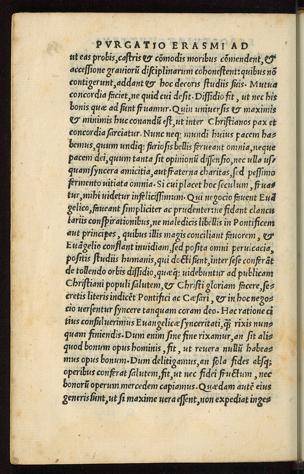 PVRGATIO ERASMI AD
ut eas probis, castris & cōmodis moribus cōmendent, &
accessione grauiorū disciplinarum cohonestent: quibus nō
contigerunt, addant & hoc decoris studiis suis. Mutua
concordia faciet, ne quid cui desit. Dissidio fit, ut nec his
bonis quæ ad sunt fruamur. Quin uniuersis & maximis
& minimis huc conandū est, ut inter Christianos pax et
concordia sarciatur. Nunc neq; mundi huius pacem ha-
bemus, quum undiq; furiosis bellis ferueant omnia, neque
pacem dei, quum tanta sit opinionū dissensio, nec ulla us-
quam syncera amicitia, aut fraterna charitas, sed pessimo
fermento uitiata omnia. Si cui placet hoc seculum, frua-
tur, mihi uidetur infelicissimum. Qui negocio fauent Euā
gelico, faueant simpliciter ac prudenter: ne fidant clancu
lariis conspirationibus, ne maledicis libellis in Pontificem
aut principes, quibus illis magis conciliant fauorem, &
Euāgelio conflant inuidiam, sed posita omni peruicacia,
positis studiis humanis, qui docti sunt, inter sese conferāt
de tollendo orbis dissidio, quæq; uidebuntur ad publicam
Christiani populi salutem, & Christi gloriam facere, se-
cretis literis indicēt Pontifici ac Cæsari, & in hoc nego-
cio uersentur syncere tanquam coram deo. Hac ratione ci
tius consuluerimus Euangelicæ synceritati, q̄ rixis nun-
quam finiendis. Dum enim sine fine rixamur, an sit ali-
quod bonum opus hominis, fit, ut reuera nullū habea-
mus opus bonum. Dum delitigamus, an sola fides absq;
operibus conferat salutem, fit, ut nec fidei fructum, nec
bonorū operum mercedem capiamus. Quædam autē eius
generis sunt, ut si maxime uera essent, non expediat inges